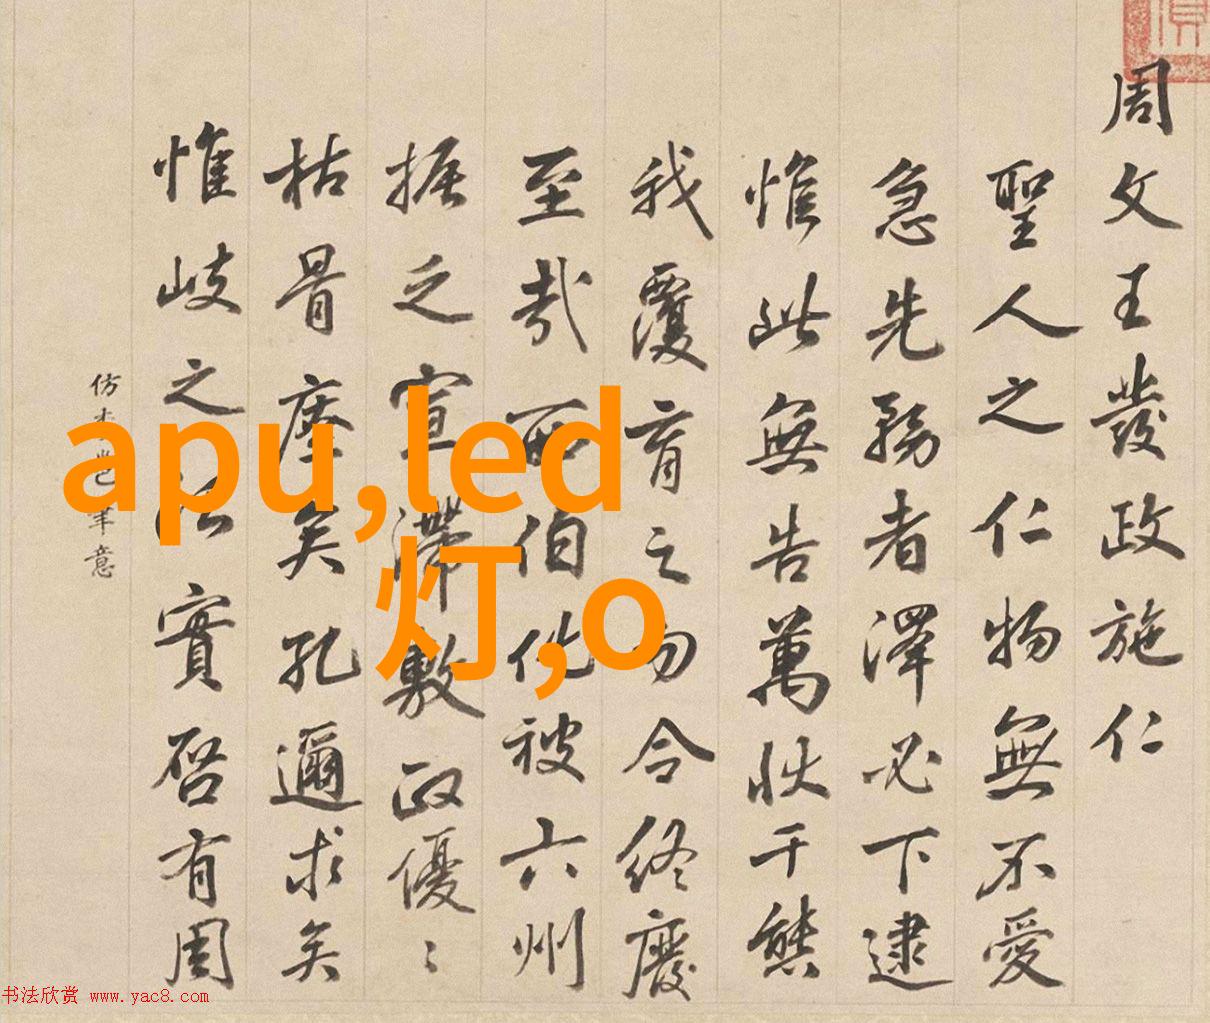 周文王發政施仁
聖人之仁物無不愛
急先務者澤必下逮
惟此無告萬狀千態
我覆育之勿令終廢
至哉西伯化被六州
振之宣滯敷政優〻
枯骨瘞矣孔邇求矣
惟岐之實啓有周
仿筆意
apu,led
灯,o
书法欣赏 www.yac8.com